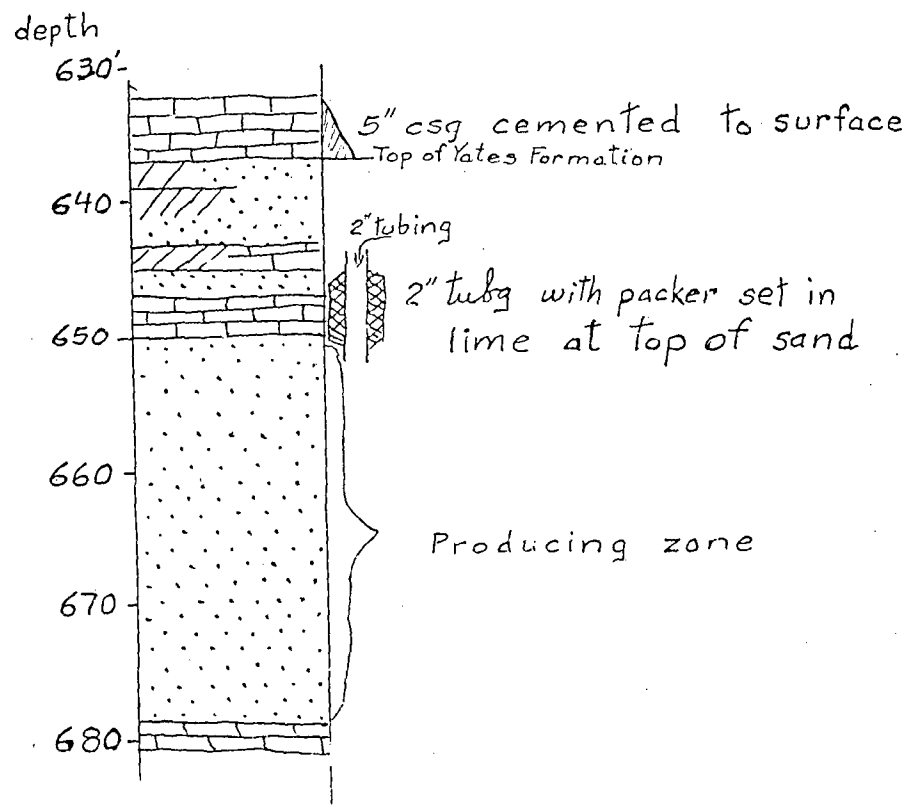 depth
630'
5" csg cemented to surface
Top of Yates Formation
640
2" tubing
2" tubg with packer set in
lime at top of sand
650
660
Producing zone
670
680